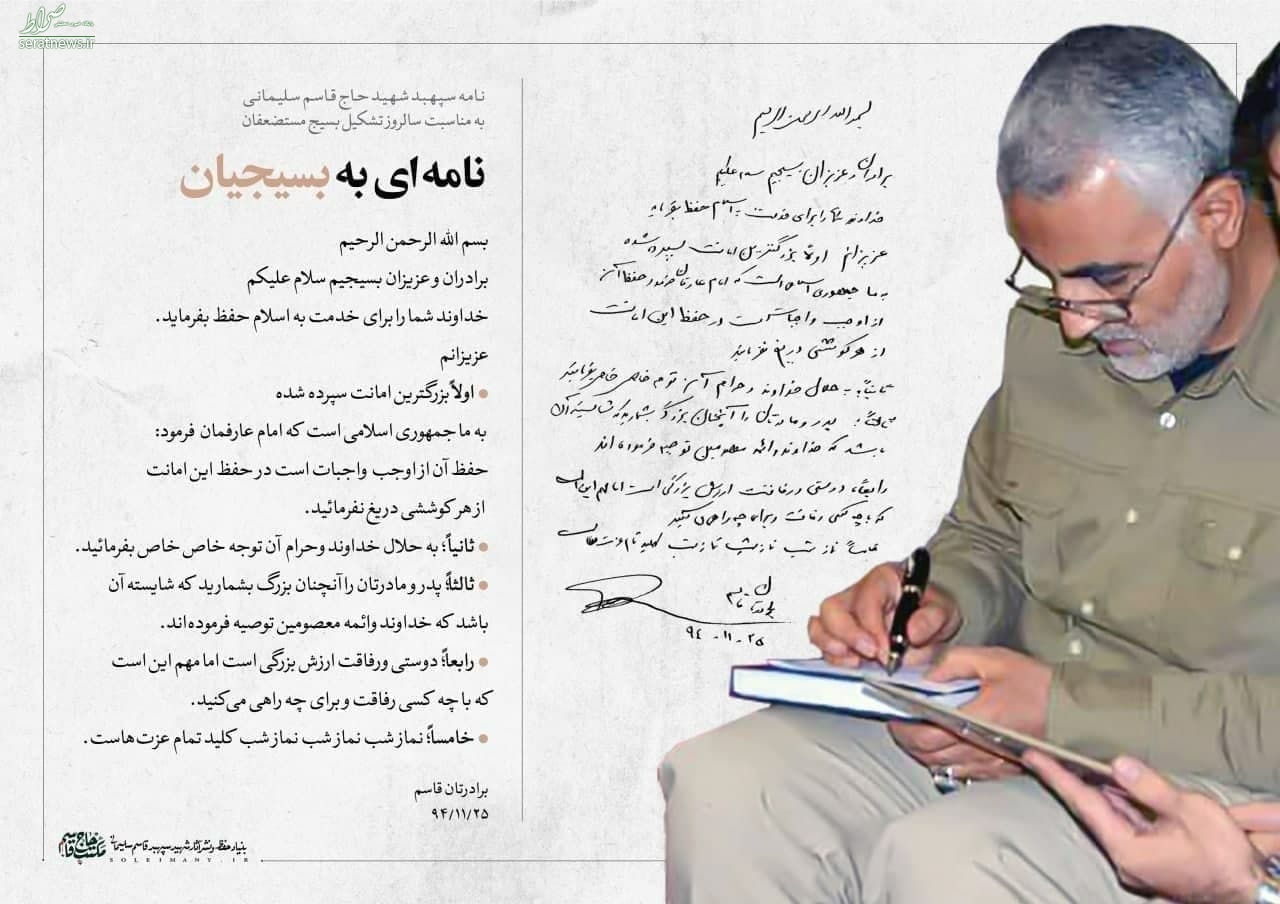 صراط
seratnews.ir
نامه سپهبد شهید حاج قاسم سلیمانی
به مناسبت سالروز تشکیل بسیج مستضعفان
نامه ای به بسیجیان
بسم الله الرحمن الرحیم
برادران و عزیزان بسیجیم سلام علیکم
خداوند شما را برای خدمت به اسلام حفظ بفرماید.
عزیزانم
• اولاً بزرگترین امانت سپرده شده
به ما جمهوری اسلامی است که امام عارفمان فرمود:
حفظ آن از اوجب واجبات است در حفظ این امانت
از هر کوششی دریغ نفرمائید.
• ثانیاً؛ به حلال خداوند وحرام آن توجه خاص خاص بفرمائید.
• ثالثاً؛ پدر و مادرتان را آنچنان بزرگ بشمارید که شایسته آن
باشد که خداوند وائمه معصومین توصیه فرموده‌اند.
• رابعاً؛ دوستی ورفاقت ارزش بزرگی است اما مهم این است
که با چه کسی رفاقت و برای چه راهی می‌کنید.
• خامساً؛ نماز شب نماز شب نماز شب کلید تمام عزت‌هاست.
برادرتان قاسم
۹۴/۱۱/۲۵
بسم الله الرحمن الرحیم
برادران و عزیزان بسیجیم سلام علیکم
خداوند شما را برای خدمت به اسلام حفظ بفرماید
عزیزانم اولاً بزرگترین امانت سپرده شده
به ما جمهوری اسلامی است که امام عارفمان فرمود حفظ آن
از اوجب واجبات است در حفظ این امانت
از هر کوششی دریغ نفرمایید
ثانیاً؛ به حلال خداوند و حرام آن توجه خاص خاص بفرمایید
ثالثاً؛ پدر و مادرتان را آنچنان بزرگ بشمارید که شایسته آن
باشد که خداوند وائمه معصومین توصیه فرموده اند
رابعاً، دوستی ورفاقت ارزش بزرگی است اما مهم این است
که با چه کسی رفاقت و برای چه راهی می کنید
خامساً نماز شب نماز شب نماز شب کلید تمام عزت هاست
برادرتان قاسم
۹۴-۱۱-۲۵
مکتب حاج قاسم
بنیاد حفظ و نشر آثار شهید سپهبد قاسم سلیمانی
SOLEIMANY.IR